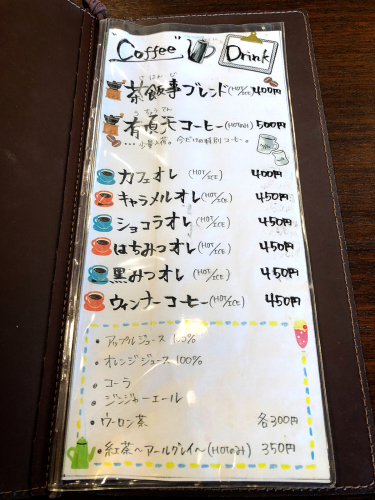 "Coffee" Drink
さはんじ
茶飯事ブレンド(HOT/ICE) 400円
うちょうてん
有頂天コーヒー(HOTのみ) 500円
...少量入荷。今だけの特別コーヒー。
カフェオレ(HOT/ICE) 400円
キャラメルオレ(HOT/ICE) 450円
ショコラオレ(HOT/ICE) 450円
はちみつオレ(HOT/ICE) 450円
黒みつオレ(HOT/ICE) 450円
ウィンナーコーヒー(HOT/ICE) 450円
・アップルジュース 100%
・オレンジジュース 100%
・コーラ
・ジンジャーエール
・ウーロン茶 各300円
・紅茶〜アールグレイ〜(HOTのみ) 350円